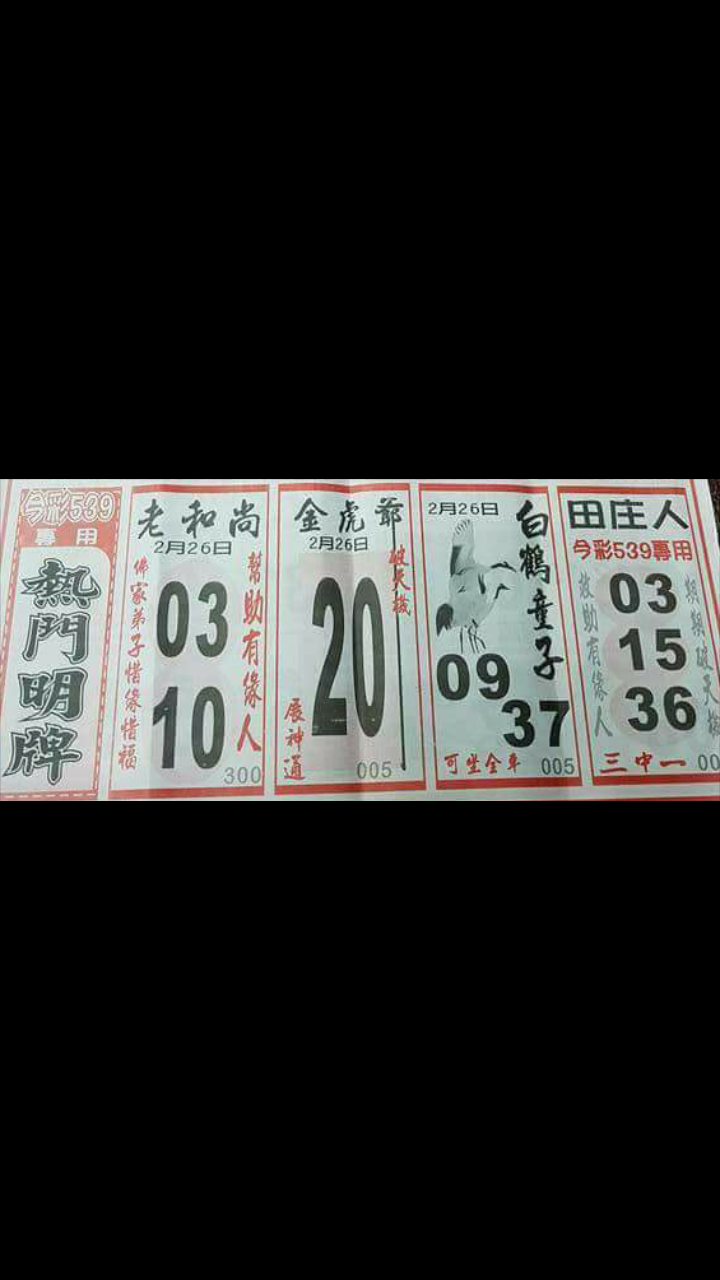 今彩539
專用
熱門明牌
老和尚
2月26日
佛家弟子惜緣惜福
03
10
幫助有緣人
300
金虎爺
2月26日
破天機
20
展神通
005
2月26日
白鶴童子
09
37
可坐全車
005
田庄人
今彩539專用
救助有緣人
03
15
36
期期破天機
三中一
00